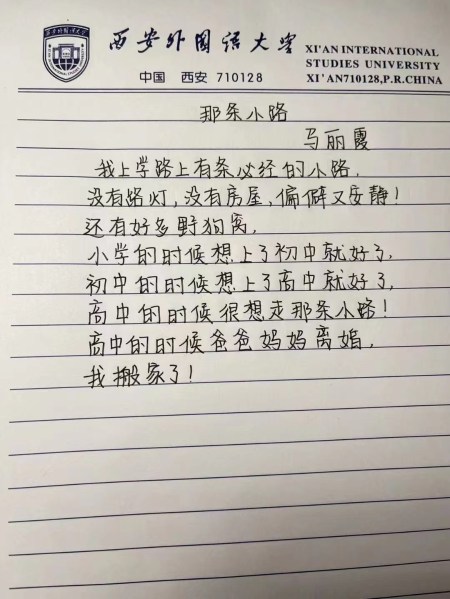 西安外国语大学
XI'AN INTERNATIONAL
STUDIES UNIVERSITY
中国 西安 710128
XI'AN710128,P.R.CHINA
那条小路
马丽霞
我上学路上有条必经的小路,
没有路灯,没有房屋,偏僻又安静!
还有好多野狗
小学的时候想上了初中就好了,
初中的时候想上了高中就好了,
高中的时候很想走那条小路!
高中的时候爸爸妈妈离婚,
我搬家了!